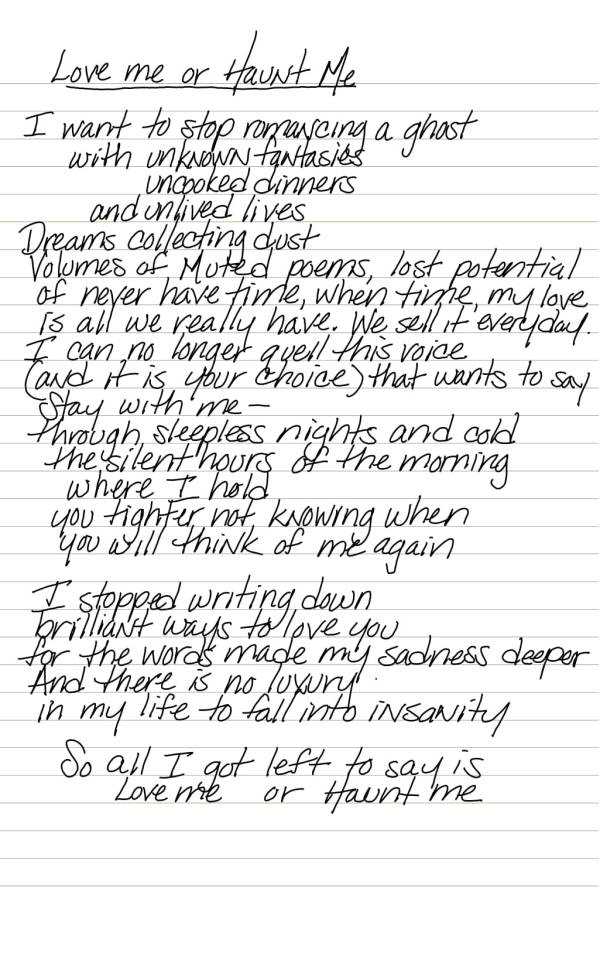 Love me or Haunt Me
I want to stop romancing a ghost
with unknown fantasies
uncooked dinners
and unlived lives
Dreams collecting dust
Volumes of Muted poems, lost potential
of never have time, when time, my love
is all we really have. We sell it everyday.
I can no longer quell this voice
(and it is your choice) that wants to say
Stay with me—
through sleepless nights and cold
the silent hours of the morning
where I hold
you tighter not knowing when
you will think of me again
I stopped writing down
brilliant ways to love you
for the words made my sadness deeper
And there is no luxury
in my life to fall into insanity
So all I got left to say is
Love me or Haunt me